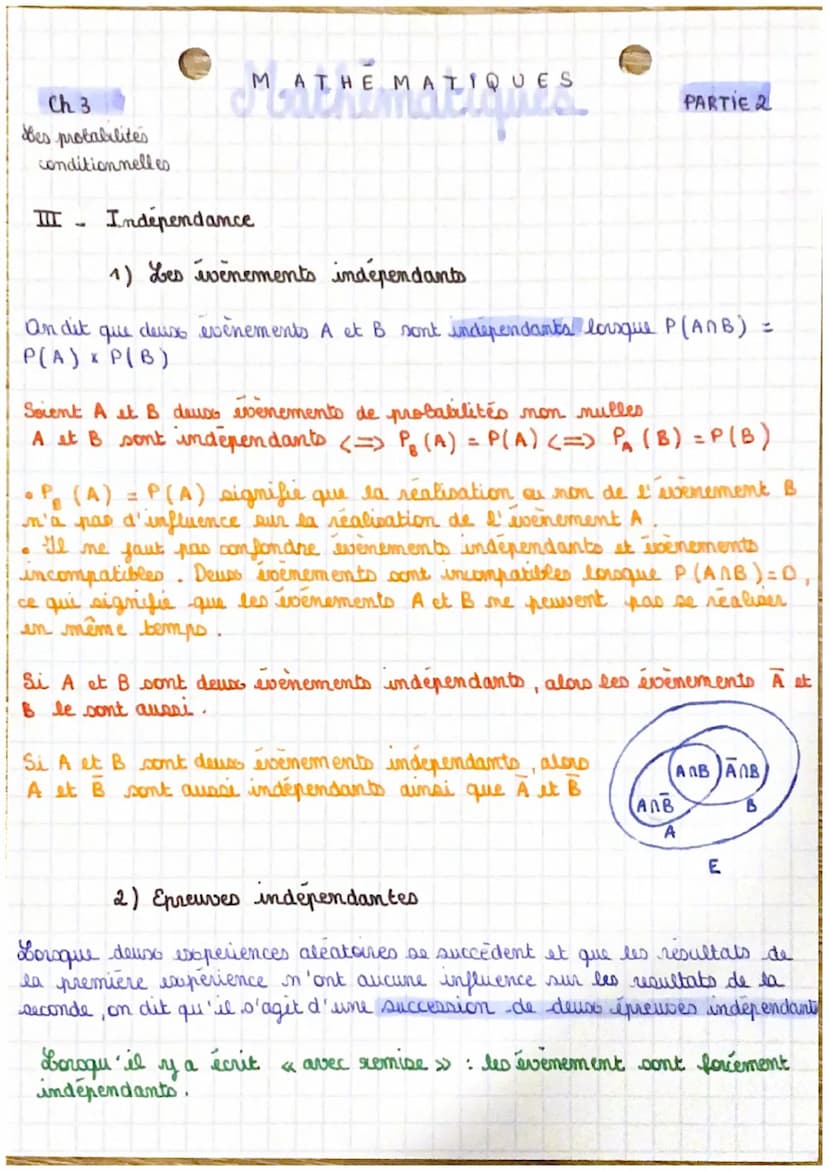 MATHEMATIQUES
Mathématiques
Ch 3
PARTIE 2
Les probabilités
conditionnelles
III - Indépendance
1) Les évènements indépendants
On dit que deux évènements A et B sont indépendants lorsque P(A∩B) =
P(A) x P(B)
Soient A et B deux évènements de probabilités non nulles
A et B sont indépendants <=> P_B (A) = P(A) <=> P_A (B) = P(B)
• P_B (A) = P(A) signifie que la réalisation ou non de l'évènement B
n'a pas d'influence sur la réalisation de l'évènement A.
• Il ne faut pas confondre évènements indépendants et évènements
incompatibles. Deux évènements sont incompatibles lorsque P(A∩B)=0,
ce qui signifie que les évènements A et B ne peuvent pas se réaliser
en même temps.
Si A et B sont deux évènements indépendants, alors les évènements A̅ et
B le sont aussi.
Si A et B sont deux évènements indépendants, alors
A et B̅ sont aussi indépendants ainsi que A̅ et B̅
A∩B A̅∩B
A∩B̅ B
A
E
2) Epreuves indépendantes
Lorsque deux expériences aléatoires se succèdent et que les résultats de
la première expérience n'ont aucune influence sur les resultats de la
seconde, on dit qu'il s'agit d'une succession de deux épreuves indépendant
Lorsqu'il y a écrit « avec remise » : les évènement sont forcément
indépendants.